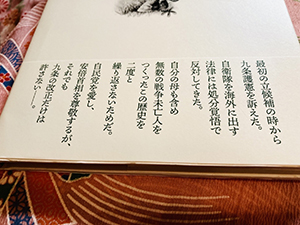 最初の立候補の時から
九条護憲を訴えた。
自衛隊を海外に出す
法律には処分覚悟で
反対してきた。
自分の母も含め
無数の戦争未亡人を
つくったこの歴史を
二度と
繰り返さないためだ。
自民党を愛し、
安倍首相を尊敬するが、
それでも
九条の改正だけは
許さない――。